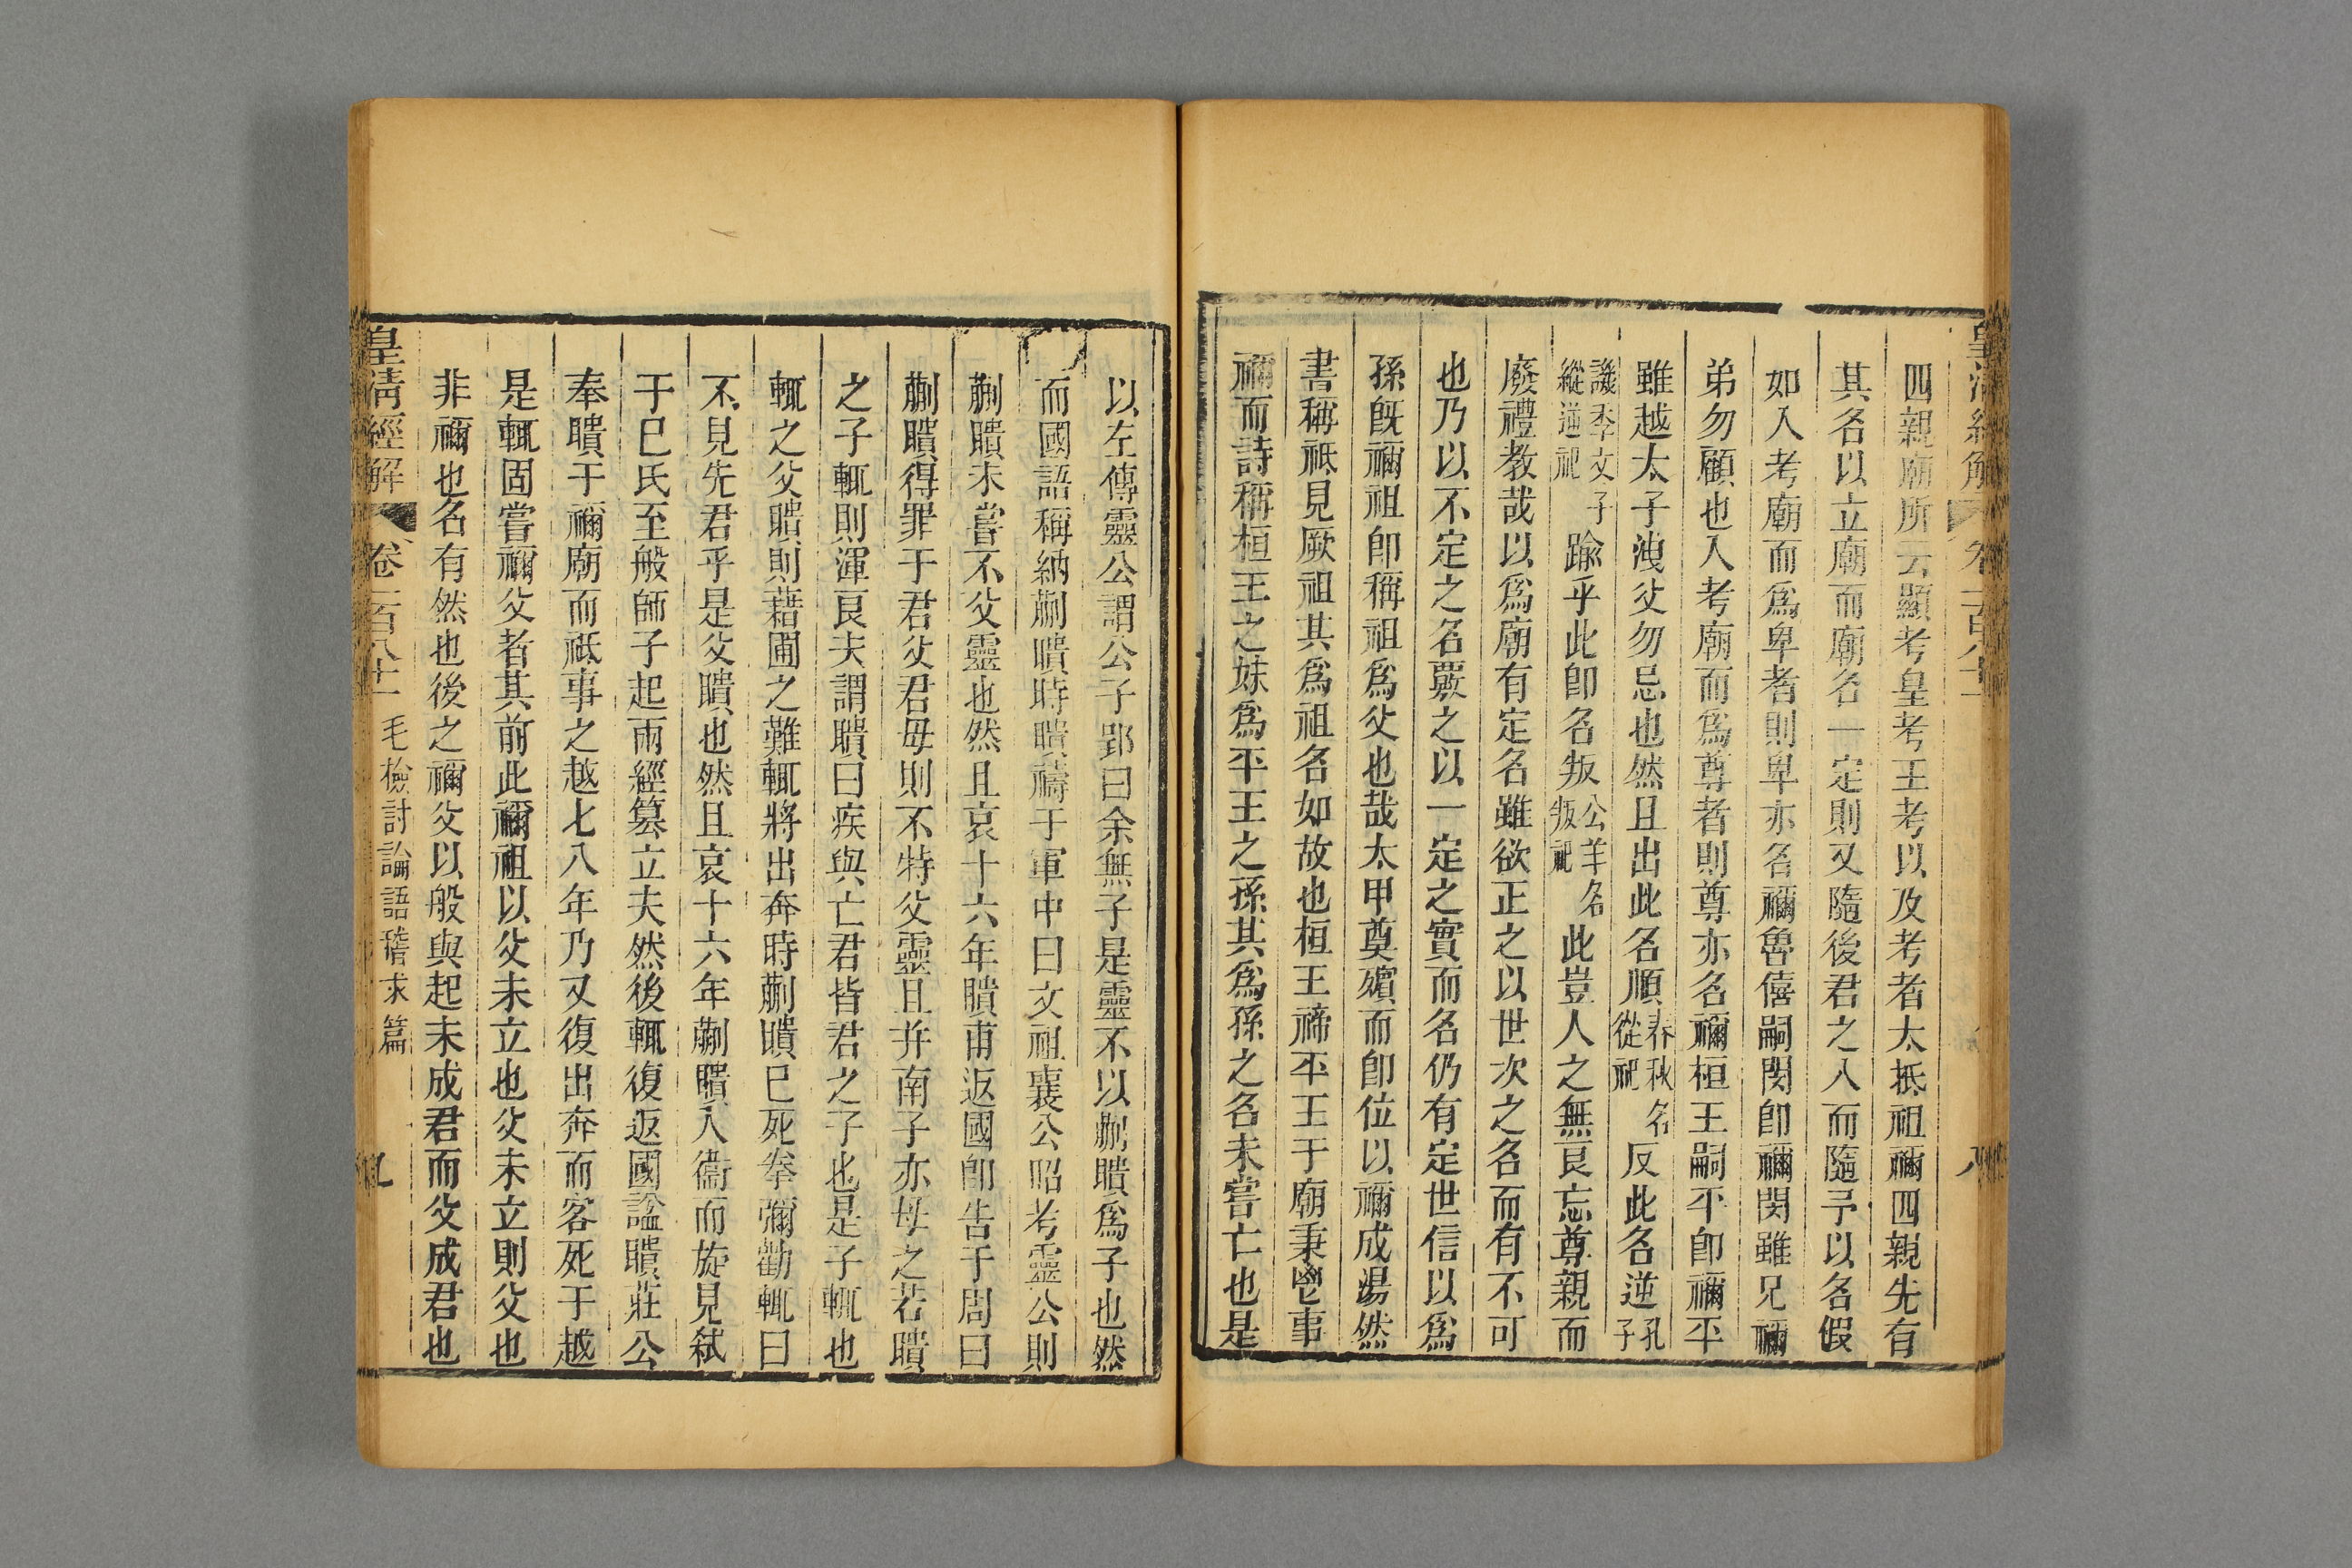 四親廟所云顯考皇考王考以及考者太抵祖禰四親先有
其名以立廟而廟名一定則又隨後君之入而隨予以名假
如入考廟而為卑者則卑亦名禰魯僖嗣閔卽禰閔雖兄禰
弟勿顧也入考廟而為尊者則尊亦名禰桓王嗣平卽禰平
雖越太子洩父勿忌也然且出此名順春秋名從祀反此名逆孔子
譏季文子縱逆祀踰乎此卽名叛公羊名叛祀此豈人之無良忘尊親而
廢禮教哉以為廟有定名雖欲正之以世次之名而有不可
也乃以不定之名覈之以一定之實而名仍有定世信以為
孫旣禰祖卽稱祖為父也哉太甲奠殯而卽位以禰成湯然
書稱祗見厥祖其為祖名如故也桓王禘平王于廟秉鬯事
禰而詩稱桓王之妹為平王之孫其為孫之名未嘗亡也是
皇清經解
八
以左傳靈公謂公子郢曰余無子是靈不以蒯聵為子也然
而國語稱納蒯聵時聵禱于軍中曰文祖襄公昭考靈公則
蒯聵未嘗不父靈也然且哀十六年聵甫返國卽告于周曰
蒯聵得罪于君父君母則不特父靈且并南子亦母之若聵
之子輒則渾良夫謂聵曰疾與亡君皆君之子也是子輒也
輒之父聵則藉圃之難輒將出奔時蒯聵已死拳彌勸輒曰
不見先君乎是父聵也然且哀十六年蒯聵入衞而旋見弑
于已氏至般師子起兩經篡立夫然後輒復返國諡聵莊公
奉聵于禰廟而祗事之越七八年乃又復出奔而客死于越
是輒固嘗禰父者其前此禰祖以父未立也父未立則父也
非禰也名有然也後之禰父以般與起未成君而父成君也
皇清經解
卷一百八十一
毛檢討論語稽求篇
九